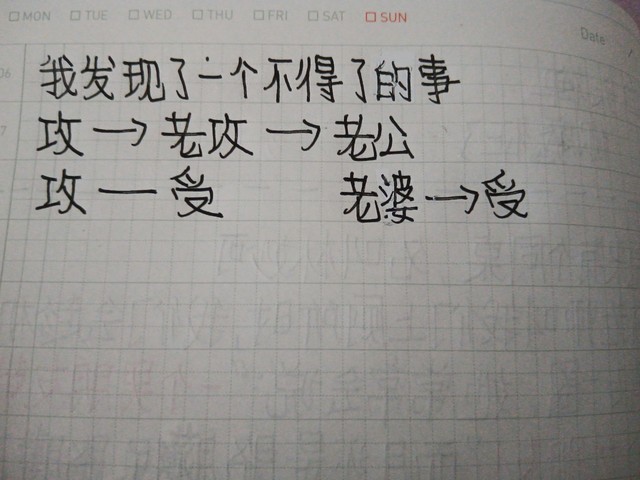 MON TUE WED THU FRI SAT SUN
Date
06
我发现了一个不得了的事
7
攻→老攻→老公
攻—受 老婆→受